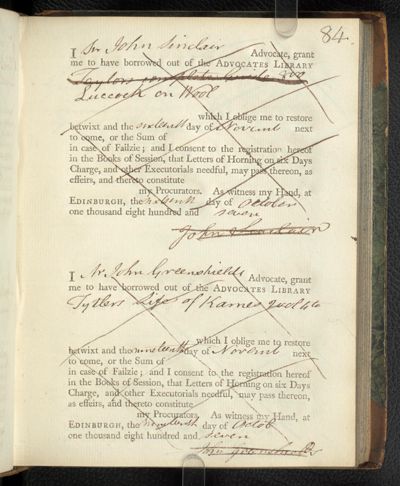 84.
I Sir John Sinclair Advocate, grant
me to have borrowed out of the ADVOCATES LIBRARY
Taylors complete Guide 8vo
Luccock on Wool
which I oblige me to restore
betwixt and the sixteenth day of Novemb next
to come, or the Sum of
in case of Failzie; and I consent to the registration hereof
in the Books of Session, that Letters of Horning on six Days
Charge, and other Executorials needful, may pass thereon, as
effeirs, and thereto constitute
my Procurators. As witness my Hand, at
EDINBURGH, the sixteenth day of october
one thousand eight hundred and seven
John Sinclair
I Mr John Greenshields Advocate, grant
me to have borrowed out of the ADVOCATES LIBRARY
Tytlers Life of Kames 2 vol 4to
which I oblige me to restore
betwixt and the nineteenth day of Novemb next
to come, or the Sum of
in case of Failzie; and I consent to the registration hereof
in the Books of Session, that Letters of Horning on six Days
Charge, and other Executorials needful, may pass thereon,
as effeirs, and thereto constitute
my Procurators. As witness my Hand, at
EDINBURGH, the nineteenth day of Octob
one thousand eight hundred and seven
John Greenshields